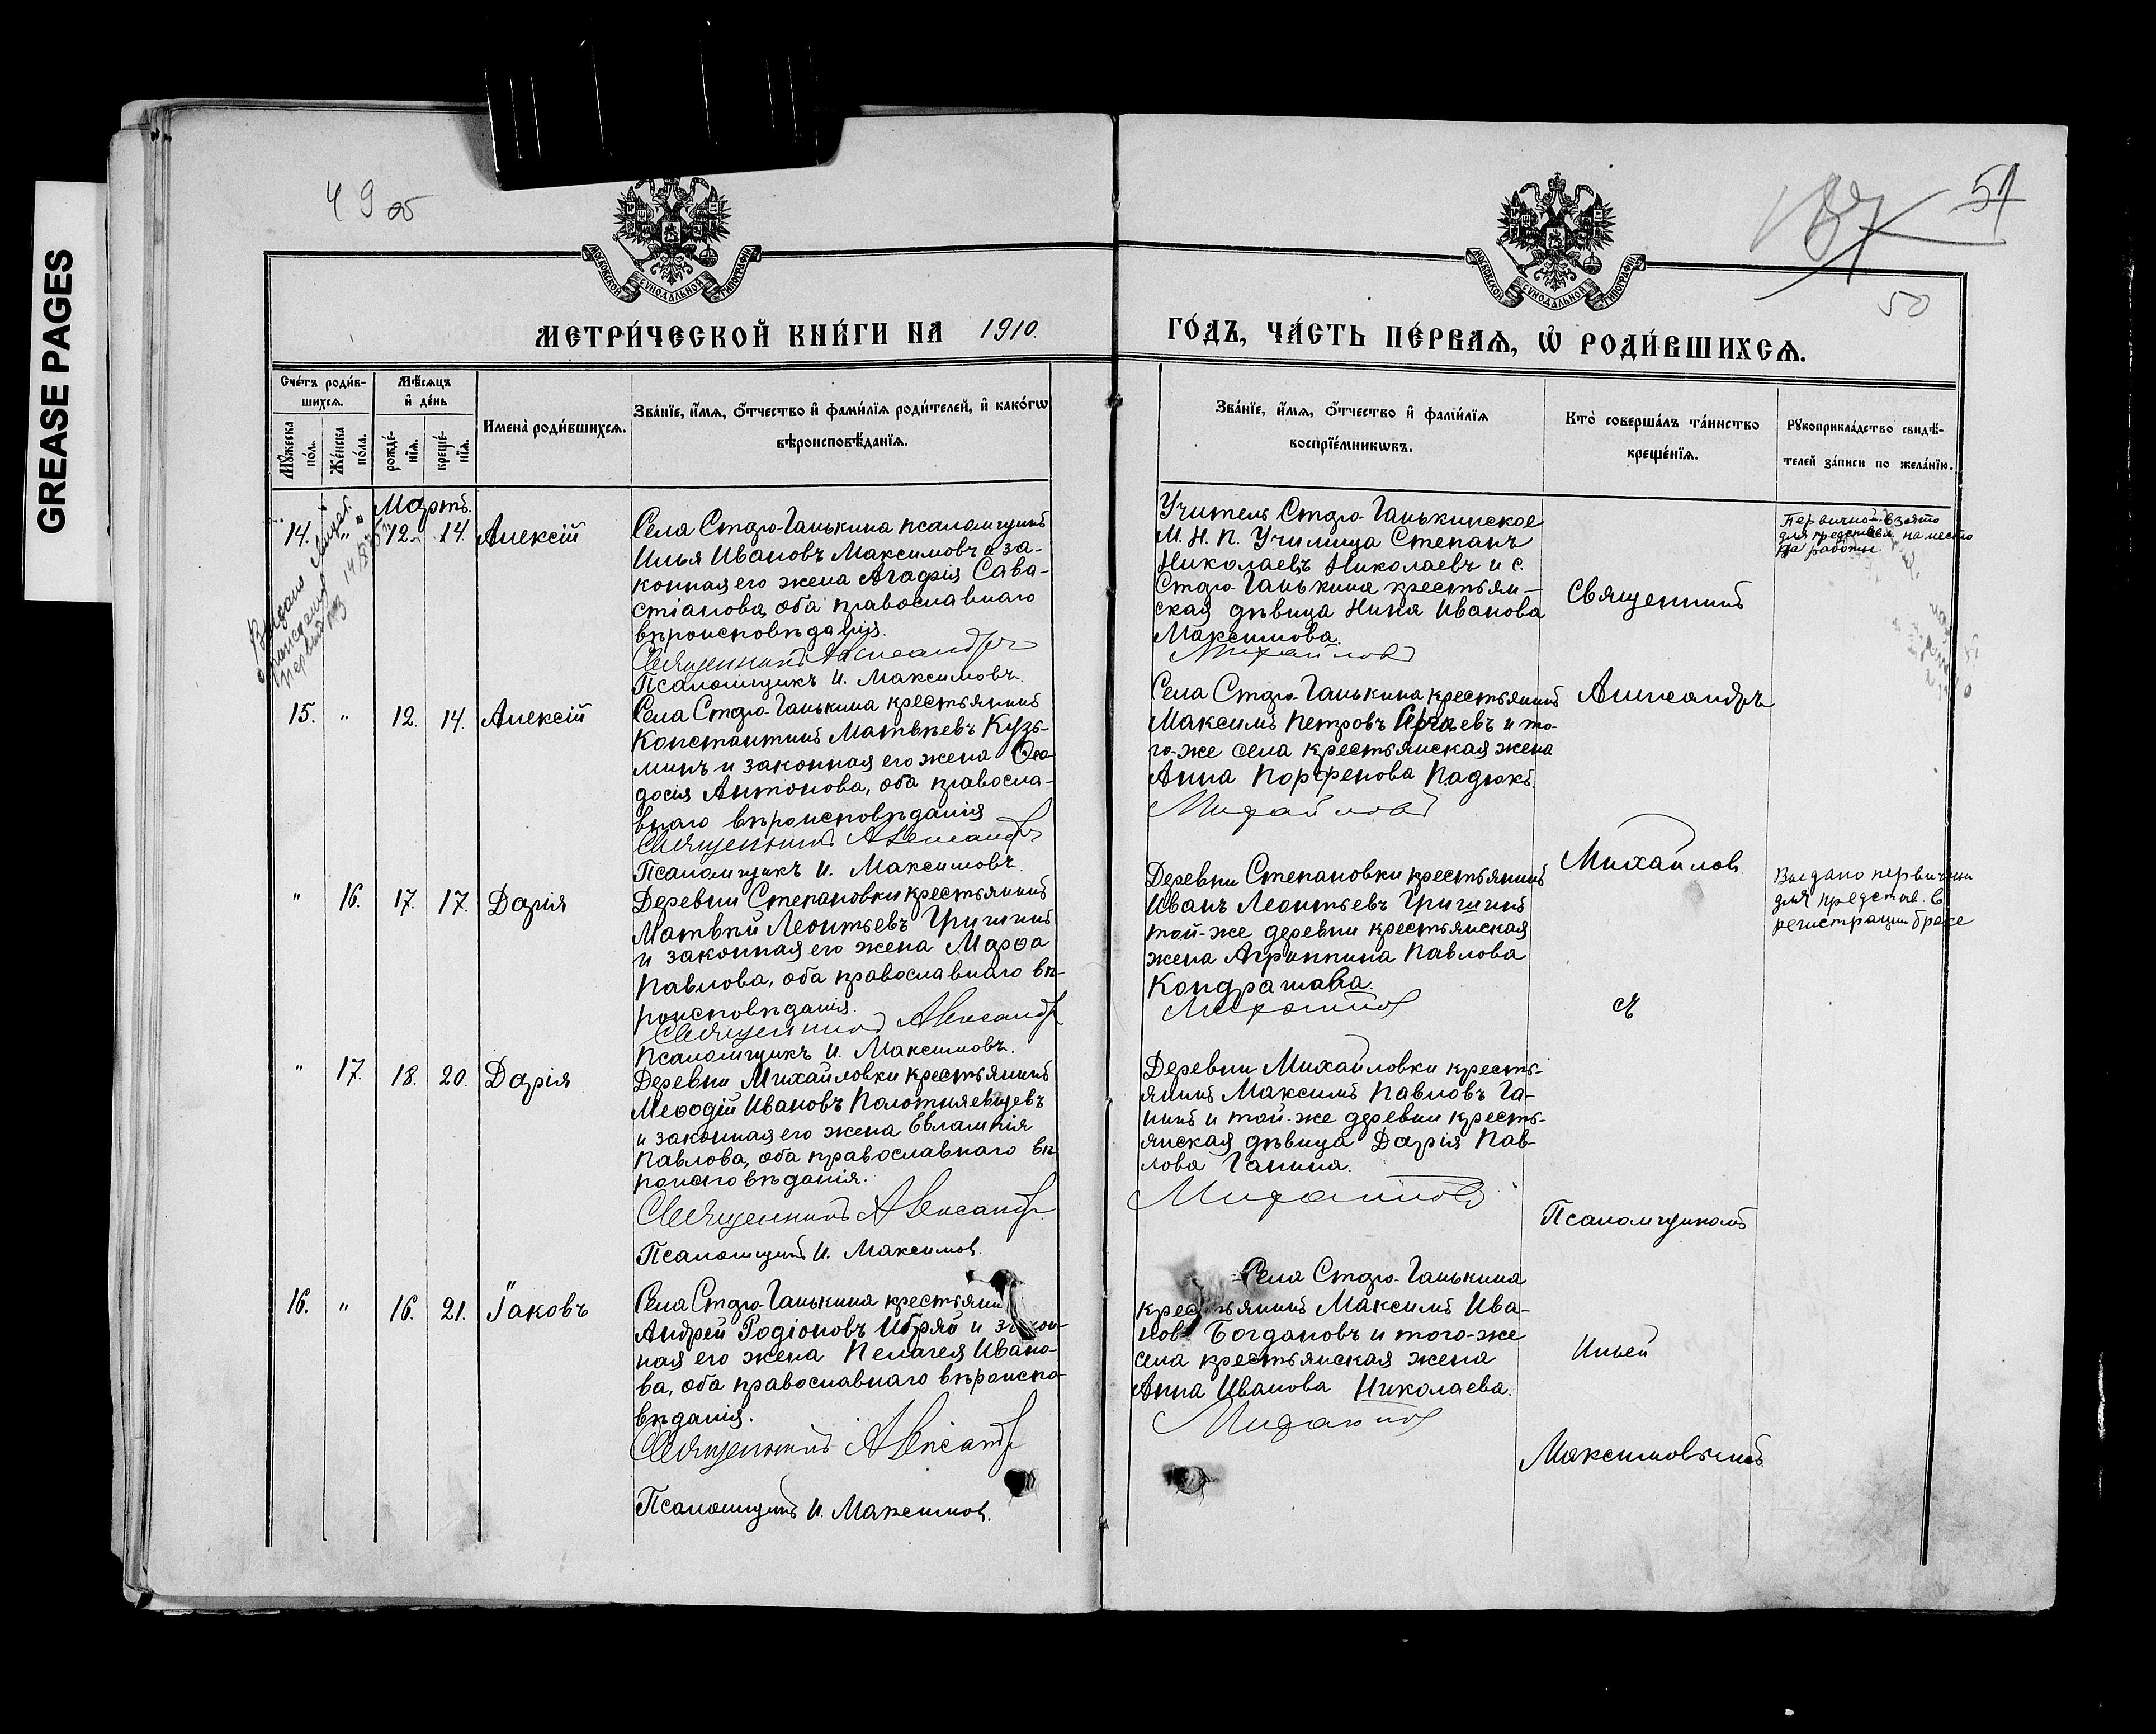 GREASE PAGES
49 об
187
51
50
МОСКОВСКОЙ СѴНОДАЛЬНОЙ ТИПОГРАФІИ
МОСКОВСКОЙ СѴНОДАЛЬНОЙ ТИПОГРАФІИ
МЕТРИ́ЧЕСКОЙ КНИ́ГИ НА 1910.
ГО́ДЪ, ЧА́СТЬ ПЕ́РВАѦ, Ѡ҆ РОДИ́ВШИХСѦ.
Сче́тъ роди́в-
шихсѧ.
Мꙋ́жеска по́л.
Же́нска по́ла.
Мѣ́сѧцъ
и҆ де́нь
рожде́-
нїѧ.
креще́-
нїѧ.
И҆мена̀ роди́вшихсѧ.
Зва́нїе, и҆́мѧ, ѻ҆́тчество и҆ фами́лїѧ роди́телей, и҆ како́гѡ
вѣроисповѣ́данїѧ.
Зва́нїе, и҆́мѧ, ѻ҆́тчество и҆ фами́лїѧ
воспрїе́мникѡвъ.
Кто̀ соверша́лъ та́инство
креще́нїѧ.
Рꙋкоприкла́дство свидѣ́-
телей за́писи по жела́нїю.
Мартъ.
14. " 12. 14. Алексій
Села Старо-Ганькина псаломщикъ
Илья Ивановъ Максимовъ и за-
конная его жена Агафія Сава-
стіанова, оба православнаго
вѣроисповѣданія.
Священникъ Александръ
Псаломщикъ И. Максимовъ.
Учитель Старо-Ганькинское
М. Н. П. Училища Степанъ
Николаевъ Николаевъ и с.
Старо-Ганькина крестьян-
ская дѣвица Нина Иванова
Максимова.
Михайловъ
Священникъ
Первичной взято
для представ на место
работы.
15. " 12. 14. Алексій
Села Старо-Ганькина крестьянинъ
Константинъ Матвѣевъ Кузь-
минъ и законная его жена Ѳео-
досія Антонова, оба правосла-
внаго вѣроисповѣданія
Священникъ Александръ
Псаломщикъ И. Максимовъ.
Села Старо-Ганькина крестьянинъ
Максимъ Петровъ и то-
го-же села крестьянская жена
Анна Порфенова Падюкъ.
Михайловъ
Александръ
Михайлов
" 16. 17. 17. Дарія
Деревни Степановки крестьянинъ
Матвѣй Леонтьевъ Гришинъ
и законная его жена Марѳа
Павлова, оба православнаго вѣ-
роисповѣданія.
Священникъ Александръ
Псаломщикъ И. Максимовъ.
Деревни Степановки крестьянинъ
Иванъ Леонтьевъ Гришинъ
той-же деревни крестьянская
жена Агриппина Павлова
Кондрашова.
Михайлов
съ
Выдано первичны
для предстыв. в
регистрации браке
" 17. 18. 20. Дарія
Деревни Михайловки крестьянинъ
Меѳодій Ивановъ Полотнянщевъ
и законная его жена Евлампія
Павлова, оба православнаго вѣ
роисповѣданія.
Священникъ Александръ
Псаломщикъ И. Максимов.
Деревни Михайловки кресть-
янинъ Максимъ Павловъ Га-
нинъ и той-же деревни кресть-
янская дѣвица Дарія Пав-
лова Ганина.
Михайловъ
Псаломщикомъ
16. " 16. 21. Іаковъ
Села Старо-Ганькина крестьянин
Андрей Родіоновъ Ибряй и закон-
ная его жена Пелагея Ивано-
ва, оба православнаго вѣроиспо-
вѣданія.
Священникъ Александр
Псаломщикъ И. Максимов.
Села Старо-Ганькина
крестьянинъ Максимъ Ива-
новъ Богдановъ и того-же
села крестьянская жена
Анна Иванова Николаева.
Михайлов
Ильей
Максимовымъ.